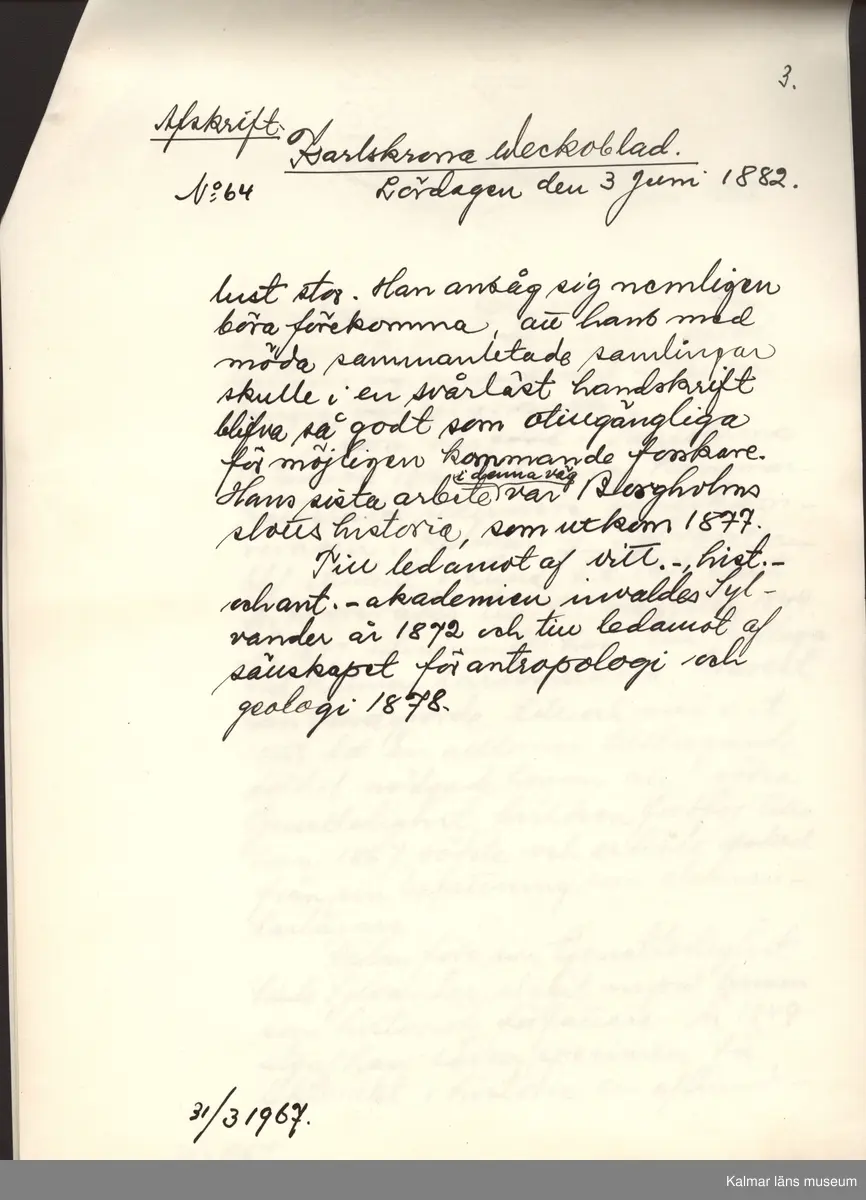 3.
Afskrift.
Karlskrona Weckoblad.
No 64
Lördagen den 3 Juni 1882.
lust stor. Han ansåg sig nemligen
böra förekomma, att hans med
möda sammanletade samlingar
skulle i en svårläst handskrift
blifva så godt som otillgängliga
för möjligen kommande forskare.
i denna väg
Hans sista arbete var Borgholms
slotts historia, som utkom 1877.
Till ledamot af vitt.-, hist.-
och ant.-akademien invaldes Syl-
vander år 1872 och till ledamot af
sällskapet för antropologi och
geologi 1878.
31/3 1967.
Kalmar läns museum